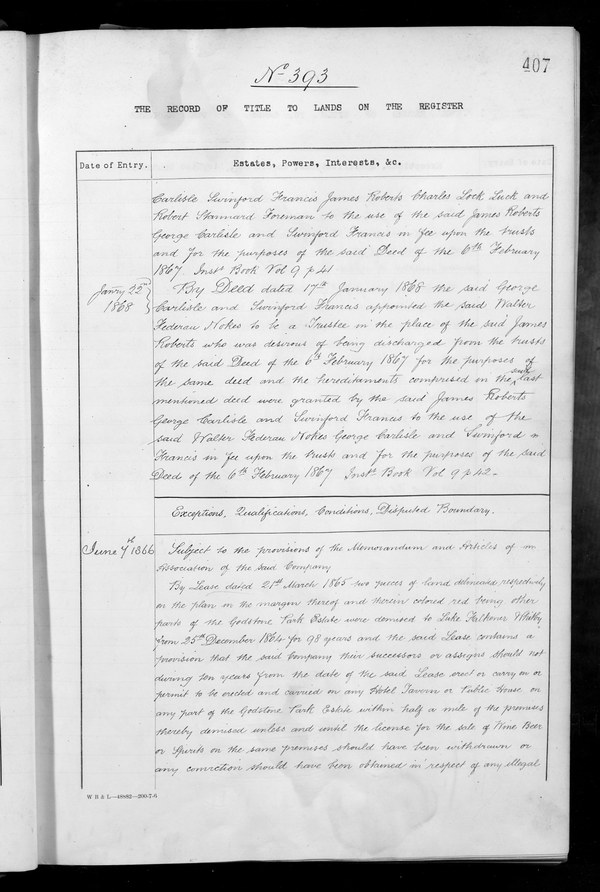 407
No 393
THE RECORD OF TITLE TO LANDS ON THE REGISTER
Date of Entry.
Estates, Powers, Interests, &c.
Carlisle Swinford Francis James Roberts Charles Lock Luck and
Robert Stannard Foreman to the use of the said James Roberts
George Carlisle and Swinford Francis in fee upon the trusts
and for the purposes of the said Deed of the 6th February
1867. Inst. Book Vol 9 p 41
Janry 25th
1868
By Deed dated 17th January 1868 the said George
Carlisle and Swinford Francis appointed the said Walter
Federau Nokes to be a Trustee in the place of the said James
Roberts who was desirous of being discharged from the trusts
of the said Deed of the 6th February 1867 for the purposes of
the same deed and the hereditaments comprised on the said last
mentioned deed were granted by the said James Roberts
George Carlisle and Swinford Francis to the use of the
said Walter Federau Nokes George Carlisle and Swinford
Francis in fee upon the trusts and for the purposes of the said
Deed of the 6th February 1867 Inst. Book Vol 9 p 42 -
Exceptions, Qualifications, Conditions, Disputed Boundary.
June 7th 1866
Subject to the provisions of the Memorandum and Articles of
Association of the said Company
By Lease dated 21st March 1865 two pieces of land delineated respectively
on the plan in the margin thereof and therein colored red being other
parts of the Godstone Park Estate were demised to Luke Falkener Whitby
from 25th December 1864 for 98 years and the said Lease contains a
provision that the said Company their successors or assigns should not
during ten years from the date of the said Lease erect or carry on or
permit to be erected and carried on any Hotel Tavern or Public House on
any part of the Godstone Park Estate within half a mile of the premises
thereby demised unless and until the license for the sale of Wine Beer
or Spirits on the same premises should have been withdrawn or
any conviction should have been obtained in respect of any illegal
W B & L—48882—200-7-6